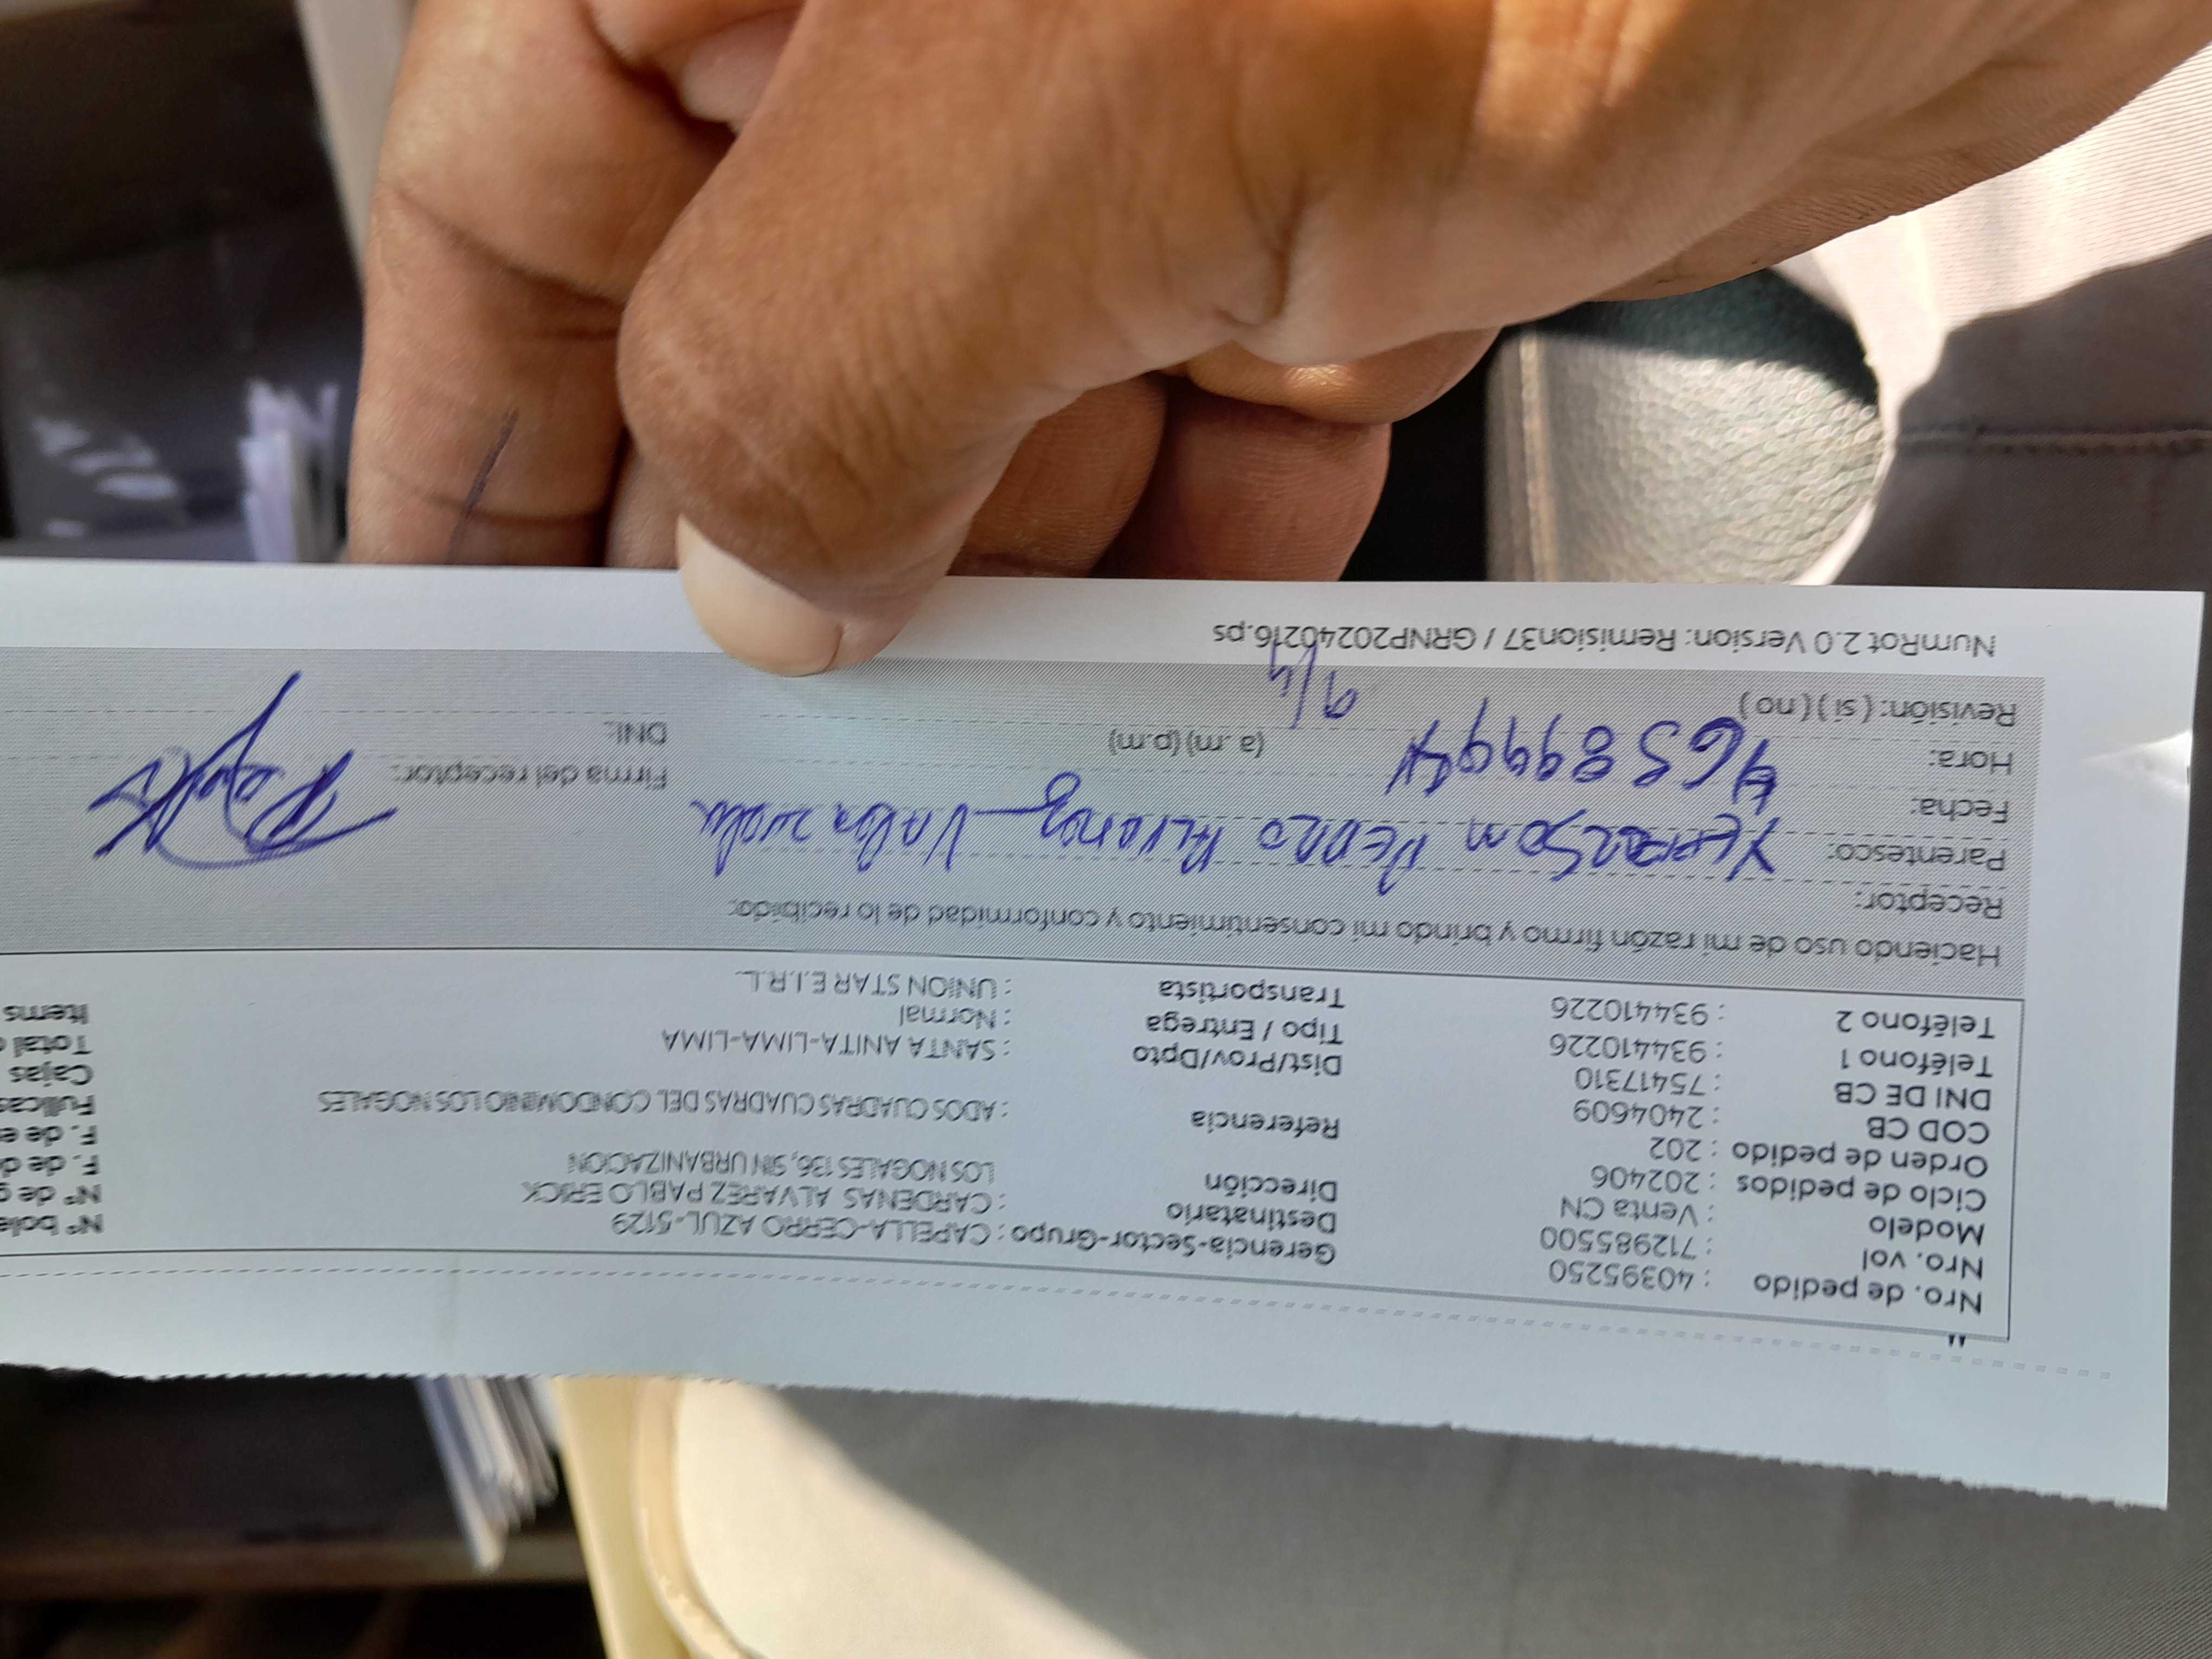 Nro. de pedido : 40395250
Nro. vol : 712985500
Modelo : Venta CN
Ciclo de pedidos : 202406
Orden de pedido : 202
COD CB : 2404609
DNI DE CB : 75417310
Teléfono 1 : 934410226
Teléfono 2 : 934410226
Gerencia-Sector-Grupo : CAPELLA-CERRO AZUL-5129
Destinatario : CARDENAS ALVAREZ PABLO ERICK
Dirección LOS NOGALES 136, SIN URBANIZACION
Referencia : A DOS CUADRAS CUADRAS DEL CONDOMINIO LOS NOGALES
Dist/Prov/Dpto : SANTA ANITA-LIMA-LIMA
Tipo / Entrega : Normal
Transportista : UNION STAR E.I.R.L.
N° bole
N° de g
F. de d
F. de e
Fullcas
Cajas
Total
Items
Haciendo uso de mi razón firmo y brindo mi consentimiento y conformidad de lo recibido:
Receptor:
Parentesco: Pedro Alvarez Valenzuela
Fecha:
Firma del receptor:
Hora: (a .m) (p.m)
DNI:
Revisión: ( sí ) ( no ) 9/4
NumRot 2.0 Version: Remision37 / GRNP20240216.ps